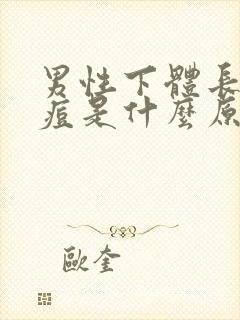 男性下體長
痘是什麼原
歐奎